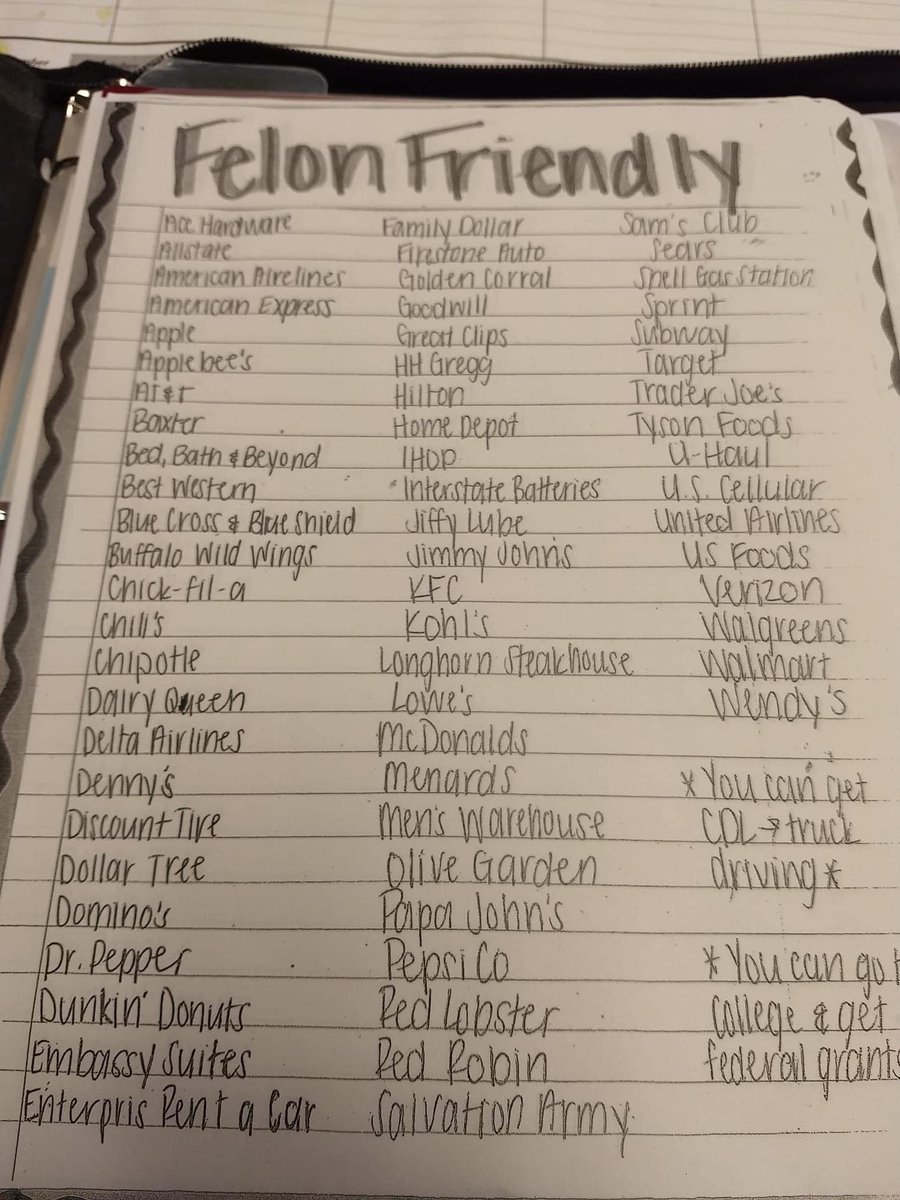 Felon Friendly
Ace Hardware
Allstate
American Airelines
American Express
Apple
Applebee's
AT&T
Baxter
Bed, Bath & Beyond
Best Western
Blue Cross & Blue Shield
Buffalo Wild Wings
Chick-fil-a
Chili's
Chipotle
Dairy Queen
Delta Airlines
Denny's
Discount Tire
Dollar Tree
Domino's
Dr. Pepper
Dunkin' Donuts
Embassy Suites
Enterpris Rent a Car
Family Dollar
Firestone Auto
Golden Corral
Goodwill
Great Clips
HH Gregg
Hilton
Home Depot
IHOP
Interstate Batteries
Jiffy Lube
Jimmy John's
KFC
Kohl's
Longhorn Steakhouse
Lowe's
McDonalds
Menards
Men's Warehouse
Olive Garden
Papa John's
PepsiCo
Red Lobster
Red Robin
Salvation Army
Sam's Club
Sears
Shell Gas Station
Sprint
Subway
Target
Trader Joe's
Tyson Foods
U-Haul
U.S. Cellular
United Airlines
US Foods
Verizon
Walgreens
Walmart
Wendy's
*You can get
CDL → truck
driving*
*You can go
college & get
federal grants